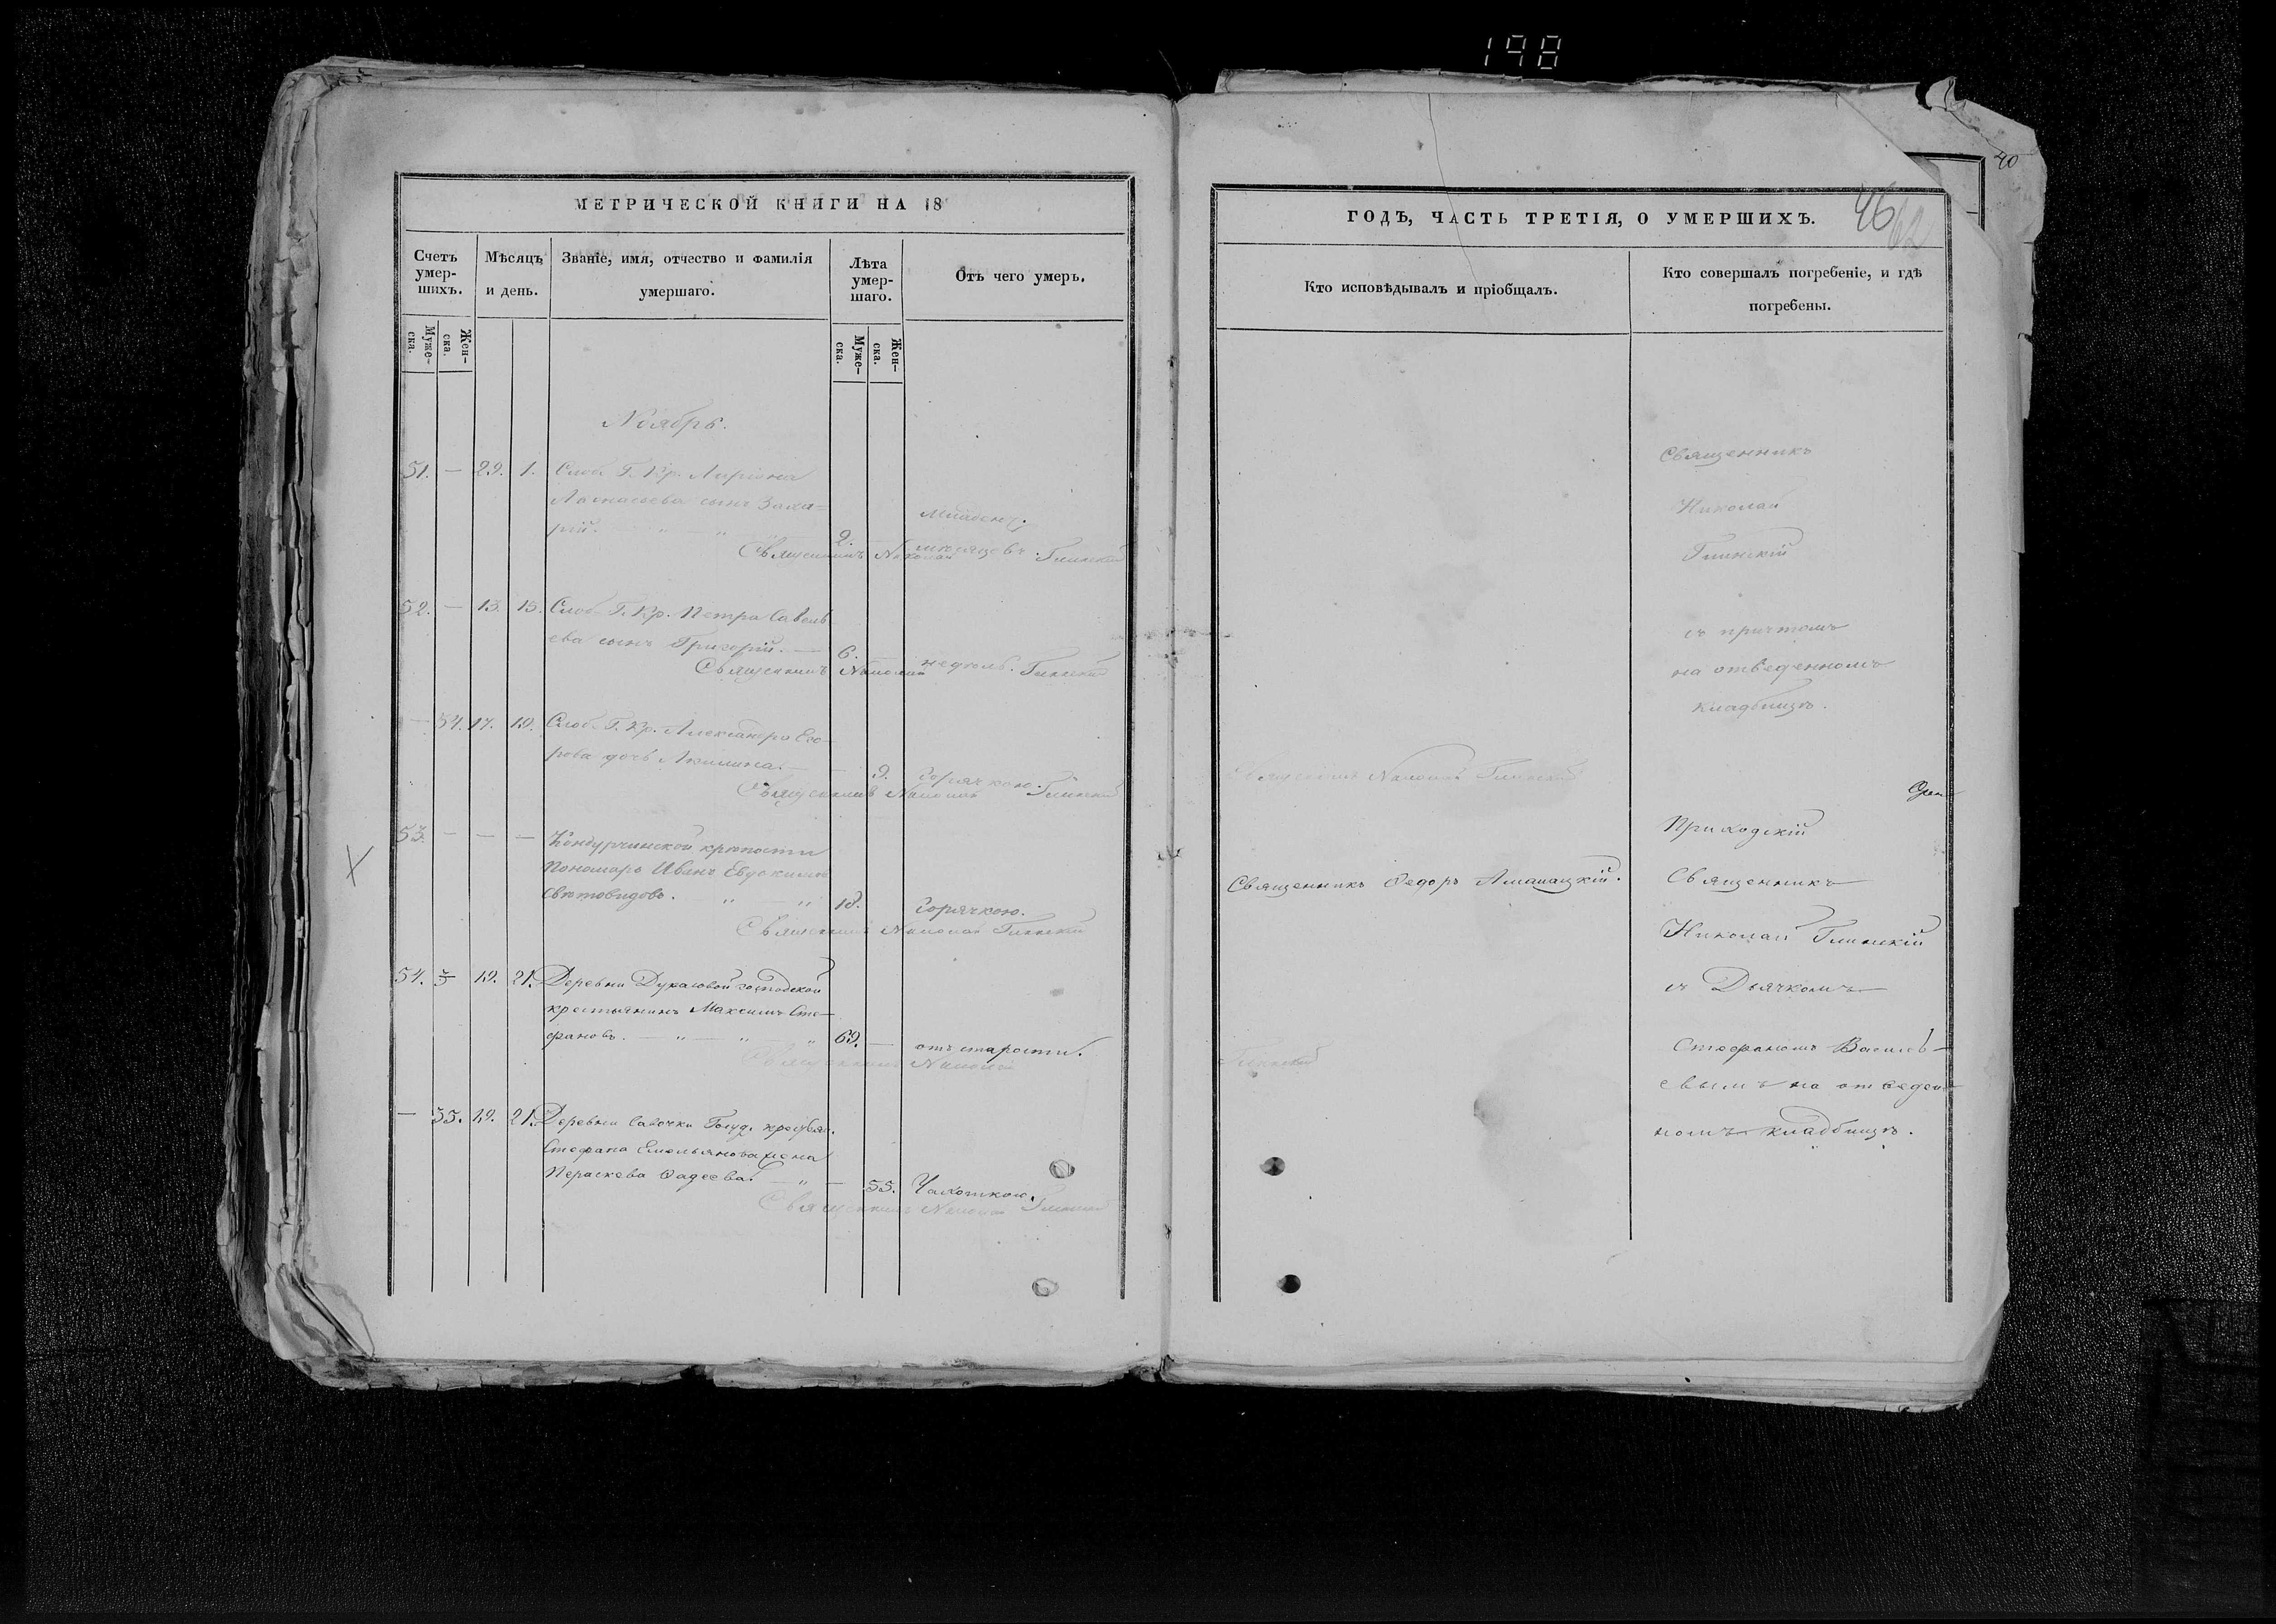 198
40
МЕТРИЧЕСКОЙ КНИГИ НА 18
Счетъ умер-шихъ.
Мѣсяцъ и день.
Званіе, имя, отчество и фамилія умершаго.
Лѣта умер-шаго.
Отъ чего умеръ.
Муже-ска.
Жен-ска.
Муже-ска.
Жен-ска.
Ноябрь.
51. — 29. 1. Слоб. Г. Кр. Ларіона
сынъ Заха=
рій. 2. младенч.
мѣсяцевъ.
Священникъ Николай Глинскій
52. — 13. 15. Слоб. Г. Кр. Петра Савель
ева сынъ Григорій. — 6. недѣль.
Священникъ Николай Глинскій
— 54. 17. 19. Слоб. Г. Кр. Александра Его-
рова дочь Акилина. — 9. горячкою.
Священникъ Николай Глинскій
53. — — — Кондурчинской крѣпости
Пономарь Иванъ Евдокимовъ
Свѣтовидовъ. 18. горячкою.
Священникъ Николай Глинскій
54. 19. 21. Деревни господской
крестьянинъ Максимъ Сте-
фановъ. 69. — отъ старости.
Священникъ Николай Глинскій
— 55. 19. 21. Деревни Савочки Госуд.
Стефана Емельянова жена
Параскева Фадеева. — 55. Чахоткою.
Священникъ Николай Глинскій
ГОДЪ, ЧАСТЬ ТРЕТІЯ, О УМЕРШИХЪ.
46
Кто исповѣдывалъ и пріобщалъ.
Кто совершалъ погребеніе, и гдѣ погребены.
Священникъ
Николай
Глинскій
съ причтомъ
на отведенномъ
кладбищѣ.
Священникъ Николай Глинскій
Приходскій
Священникъ Федоръ Аманацкій.
Священникъ
Николай Глинскій
съ Дьячкомъ
Стефаномъ Василь-
евымъ на отведен-
номъ кладбищѣ.